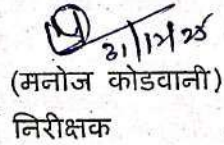 31/12/25
(मनोज कोडवानी)
निरीक्षक